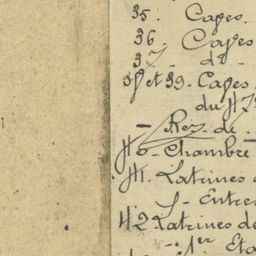 35. Cages.
36. Cages
37 - do -
38 et 39. Cages
du N°
- Rez-de-
40 - Chambre
41. Latrines
- Entre
42 Latrines de
- 1er Eta